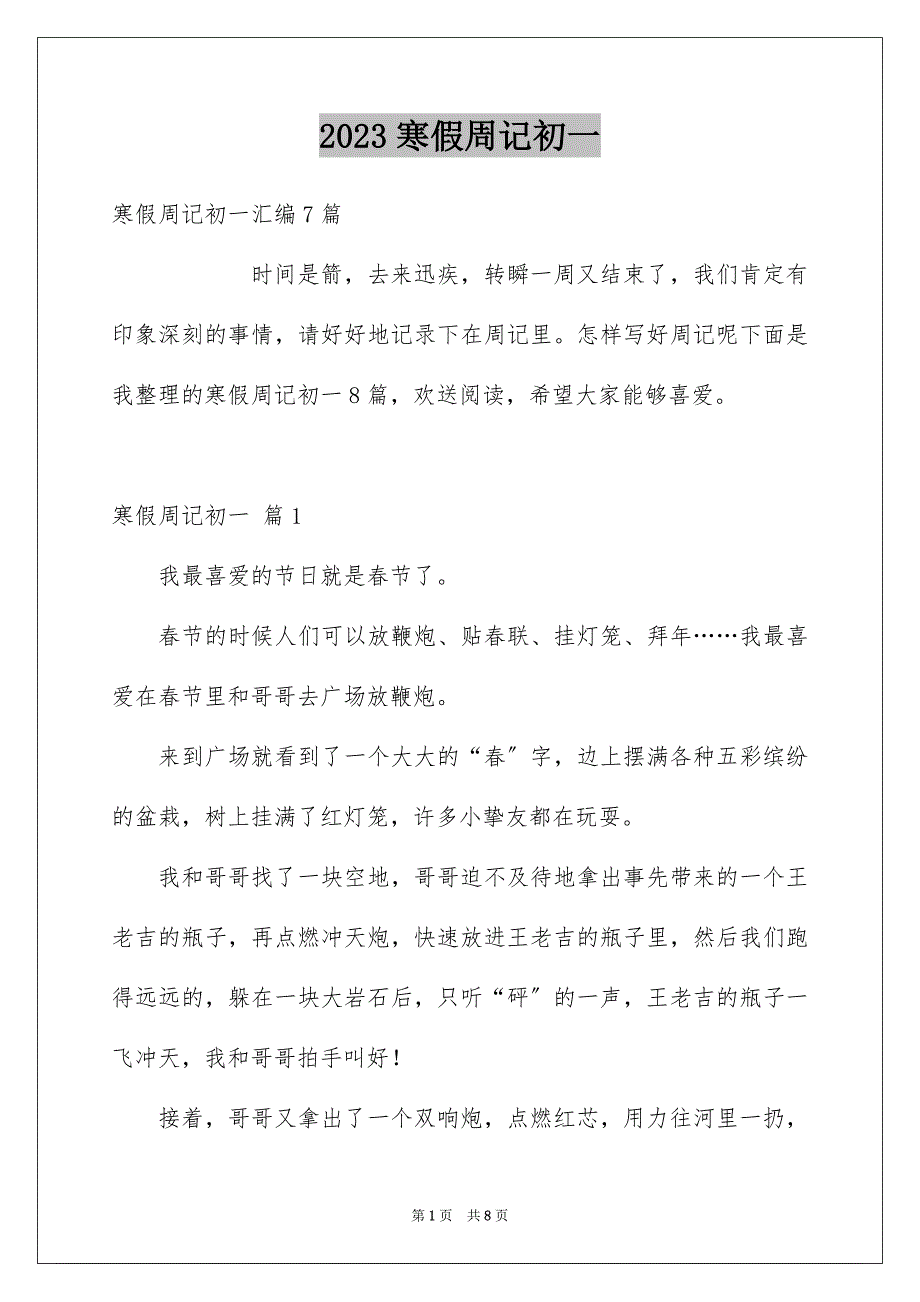 2023寒假周记初一
寒假周记初一汇编7篇
时间是箭，去来迅疾，转瞬一周又结束了，我们肯定有
印象深刻的事情，请好好地记录下在周记里。怎样写好周记呢下面是
我整理的寒假周记初一8篇，欢送阅读，希望大家能够喜爱。
寒假周记初一 篇1
我最喜爱的节日就是春节了。
春节的时候人们可以放鞭炮、贴春联、挂灯笼、拜年……我最喜
爱在春节里和哥哥去广场放鞭炮。
来到广场就看到了一个大大的“春〞字，边上摆满各种五彩缤纷
的盆栽，树上挂满了红灯笼，许多小挚友都在玩耍。
我和哥哥找了一块空地，哥哥迫不及待地拿出事先带来的一个王
老吉的瓶子，再点燃冲天炮，快速放进王老吉的瓶子里，然后我们跑
得远远的，躲在一块大岩石后，只听“砰〞的一声，王老吉的瓶子一
飞冲天，我和哥哥拍手叫好！
接着，哥哥又拿出了一个双响炮，点燃红芯，用力往河里一扔，
第1页 共8页